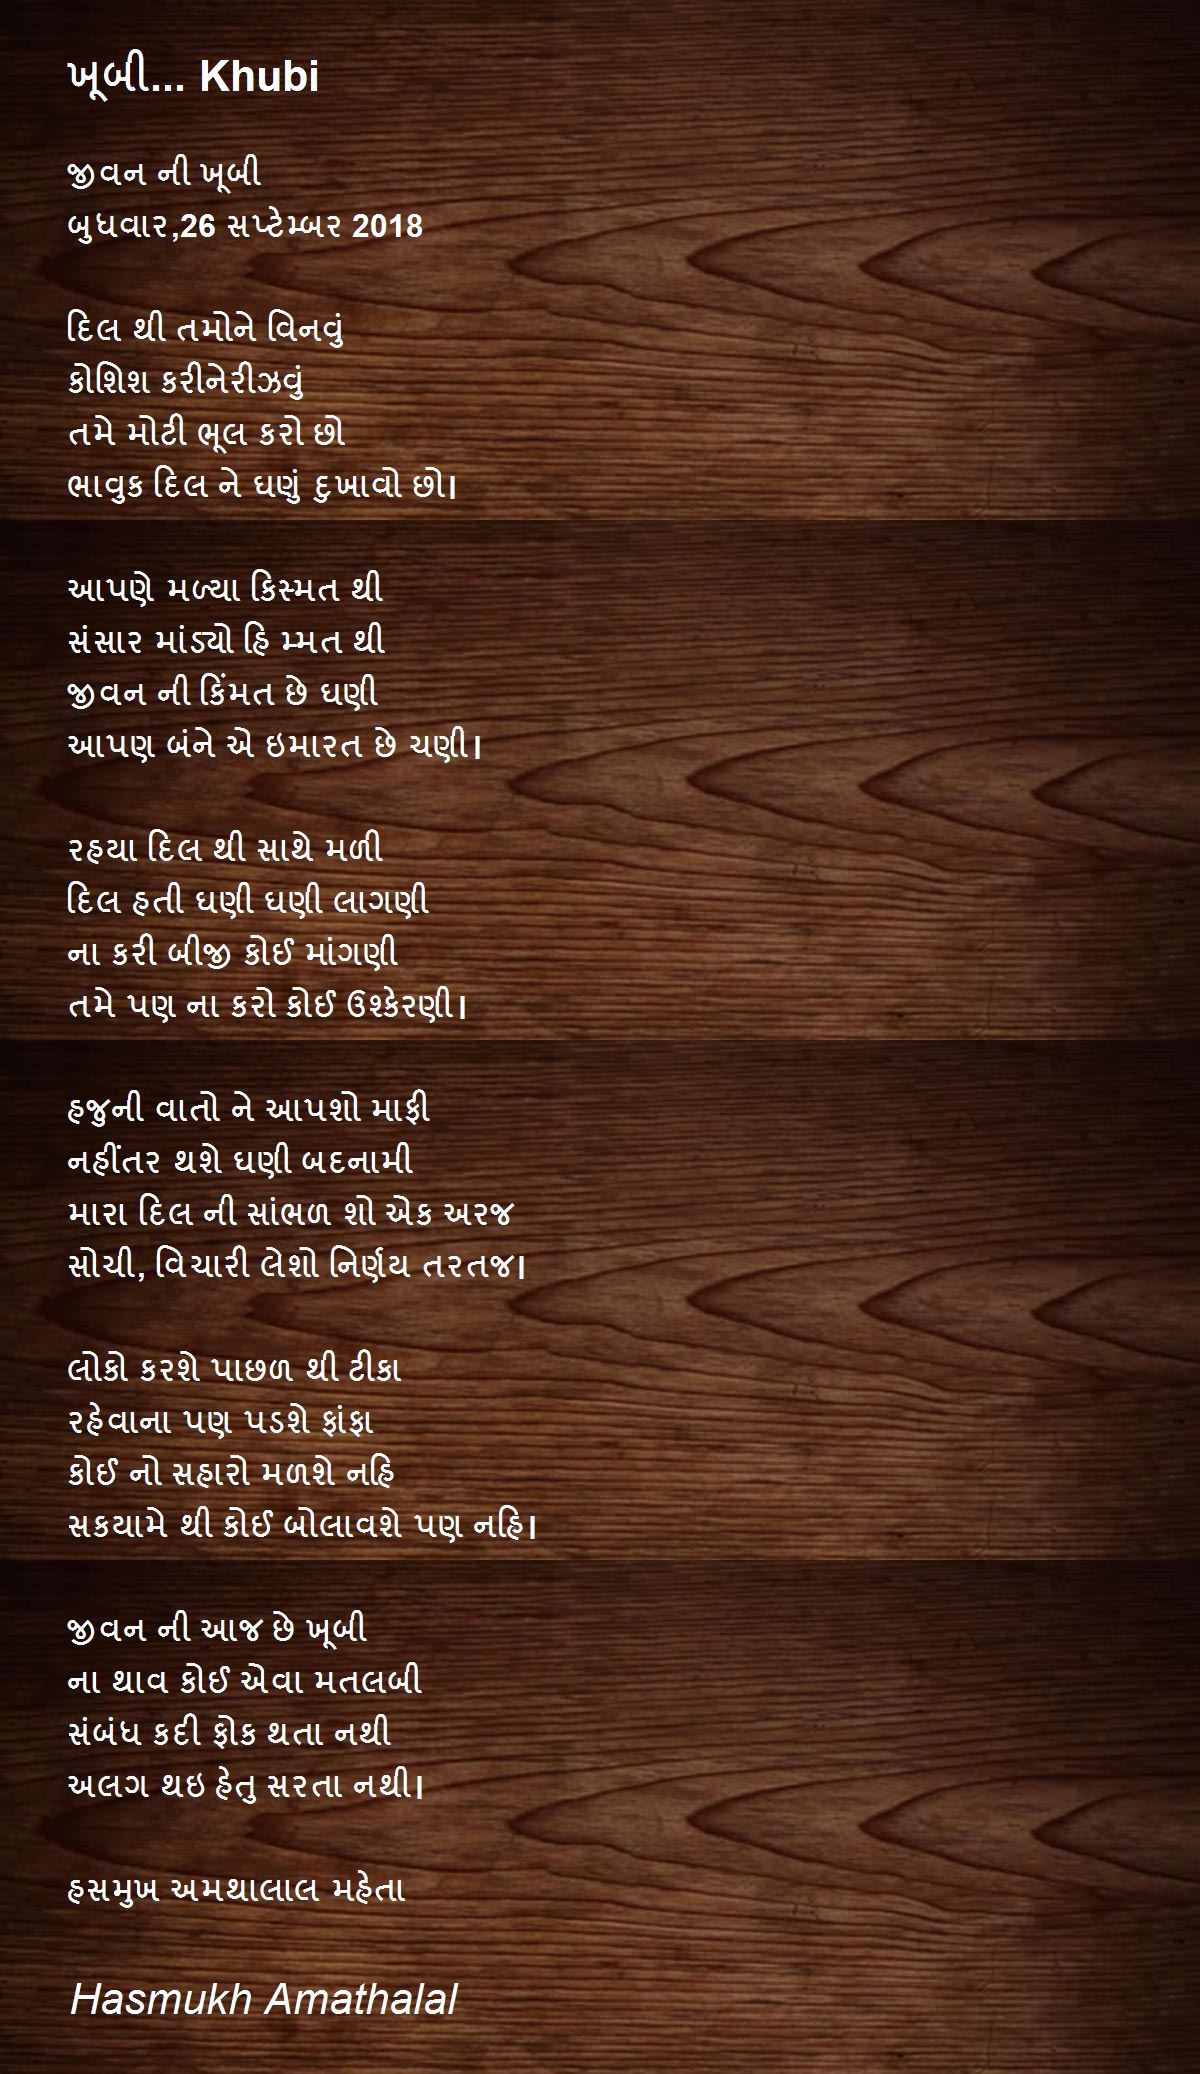 ખૂબી... Khubi
જીવન ની ખૂબી
બુધવાર,26 સપ્ટેમ્બર 2018
દિલ થી તમોને વિનવું
કોશિશ કરીનેરીઝવું
તમે મોટી ભૂલ કરો છો
ભાવુક દિલ ને ઘણું દુખાવો છો।
આપણે મળ્યા કિસ્મત થી
સંસાર માંડ્યો હિ મ્મત થી
જીવન ની કિંમત છે ઘણી
આપણ બંને એ ઇમારત છે ચણી।
રહયા દિલ થી સાથે મળી
દિલ હતી ઘણી ઘણી લાગણી
ના કરી બીજી કોઈ માંગણી
તમે પણ ના કરો કોઈ ઉશ્કેરણી।
હજુની વાતો ને આપશો માફી
નહીંતર થશે ઘણી બદનામી
મારા દિલ ની સાંભળ શો એક અરજ
સોચી, વિચારી લેશો નિર્ણય તરતજ।
લોકો કરશે પાછળ થી ટીકા
રહેવાના પણ પડશે ફાંફા
કોઈ નો સહારો મળશે નહિ
સકયામે થી કોઈ બોલાવશે પણ નહિ।
જીવન ની આજ છે ખૂબી
ના થાવ કોઈ એવા મતલબી
સંબંધ કદી ફોક થતા નથી
અલગ થઇ હેતુ સરતા નથી।
હસમુખ અમથાલાલ મહેતા
Hasmukh Amathalal